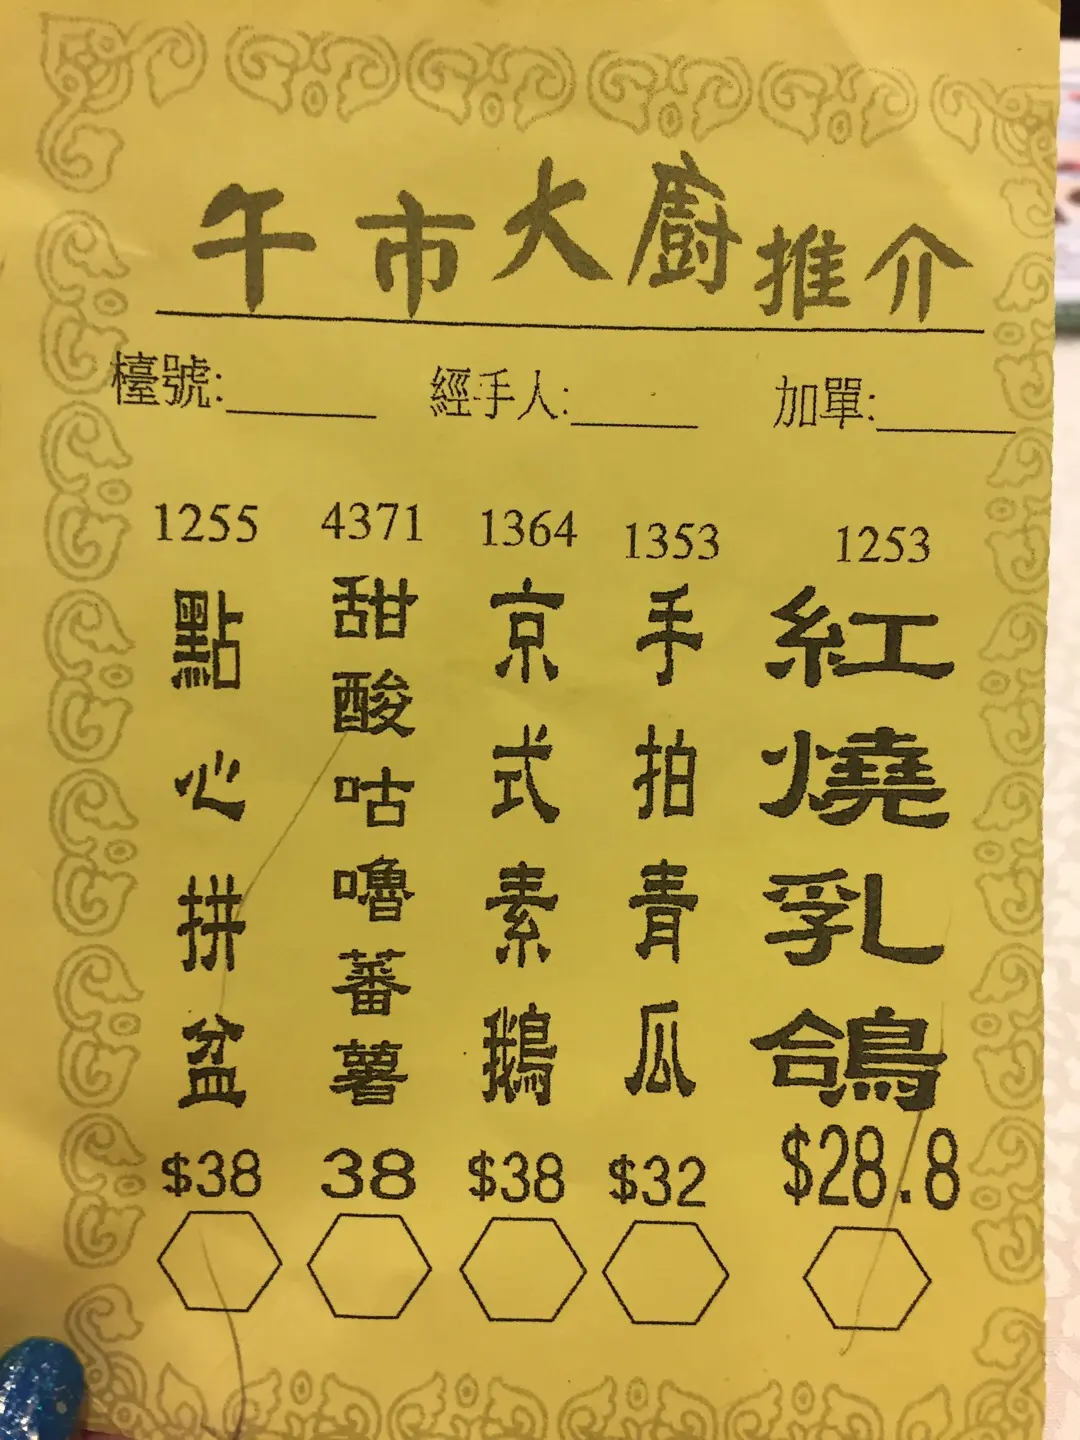 午市大廚推介
檯號:______ 經手人:______ 加單:______
1253
紅燒乳鴿
$28.8
1353
手拍青瓜
$32
1364
京式素鵝
$38
4371
甜酸咕嚕蕃薯
38
1255
點心拼盆
$38